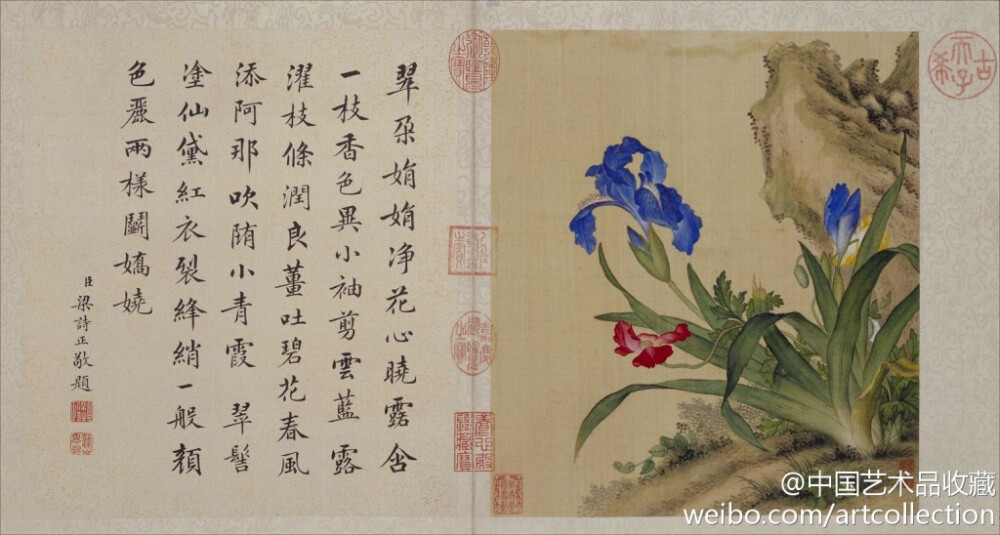 古希天子
翠朵娟娟净花心曉露含
一枝香色異小袖剪雲藍露
濯枝條潤良薑吐碧花春風
添阿那吹随小青霞　翠髻
塗仙黛紅衣裂絳綃一般顏
色麗兩樣鬭嬌嬈
臣梁詩正敬題
@中国艺术品收藏
weibo.com/artcollection